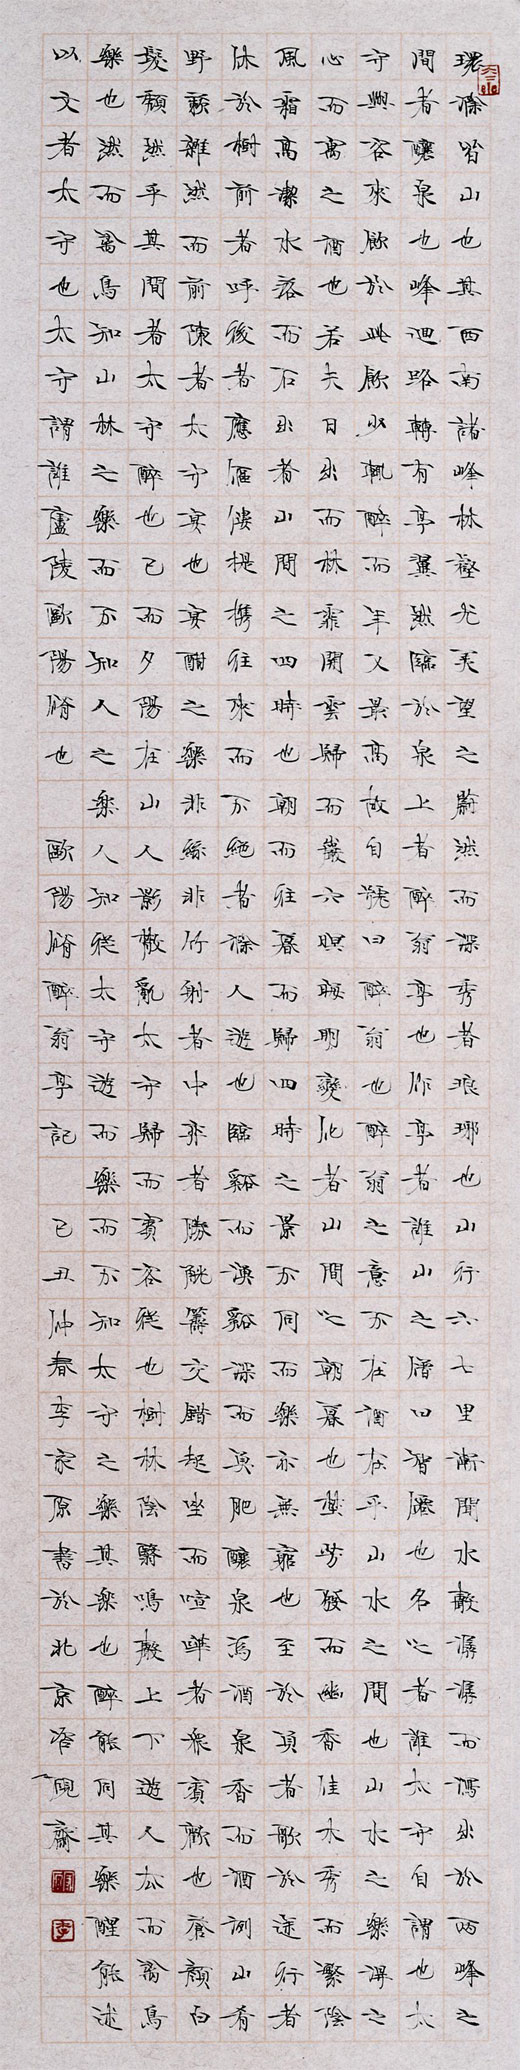 環滁皆山也其西南諸峰林壑尤美望之蔚然而深秀者琅琊也山行六七里漸聞水聲潺潺而瀉出於兩峰之
間者釀泉也峰迴路轉有亭翼然臨於泉上者醉翁亭也作亭者誰山之僧曰智僊也名之者誰太守自謂也太
守與客來飲於此飲少輒醉而年又最高故自號曰醉翁也醉翁之意不在酒在乎山水之間也山水之樂得之
心而寓之酒也若夫日出而林霏開雲歸而巖穴暝晦明變化者山間之朝暮也野芳發而幽香佳木秀而繁陰
風霜高潔水落而石出者山間之四時也朝而往暮而歸四時之景不同而樂亦無窮也至於負者歌於途行者
休於樹前者呼後者應傴僂提攜往來而不絕者滁人遊也臨谿而漁谿深而魚肥釀泉為酒泉香而酒洌山肴
野蔌雜然而前陳者太守宴也宴酣之樂非絲非竹射者中弈者勝觥籌交錯起坐而喧嘩者眾賓歡也蒼顏白
髮頹然乎其間者太守醉也已而夕陽在山人影散亂太守歸而賓客從也樹林陰翳鳴聲上下遊人去而禽鳥
樂也然而禽鳥知山林之樂而不知人之樂人知從太守遊而樂而不知太守之樂其樂也醉能同其樂醒能述
以文者太守也太守謂誰廬陵歐陽脩也 歐陽脩醉翁亭記 己丑仲春李家原書於北京硯齋